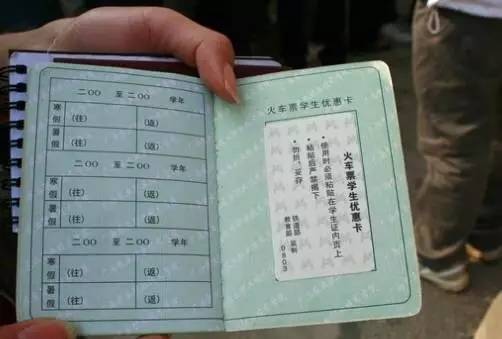 二〇〇 至 二〇〇 学年
寒假 (往) (返)
暑假 (往) (返)
二〇〇 至 二〇〇 学年
寒假 (往) (返)
暑假 (往) (返)
二〇〇 至 二〇〇 学年
寒假 (往) (返)
暑假 (往) (返)
火车票学生优惠卡
火车票学生优惠卡
·使用时必须粘贴在学生证内页上
·粘贴后严禁揭下
·勿折、妥存
铁道部
教育部
监制
0803